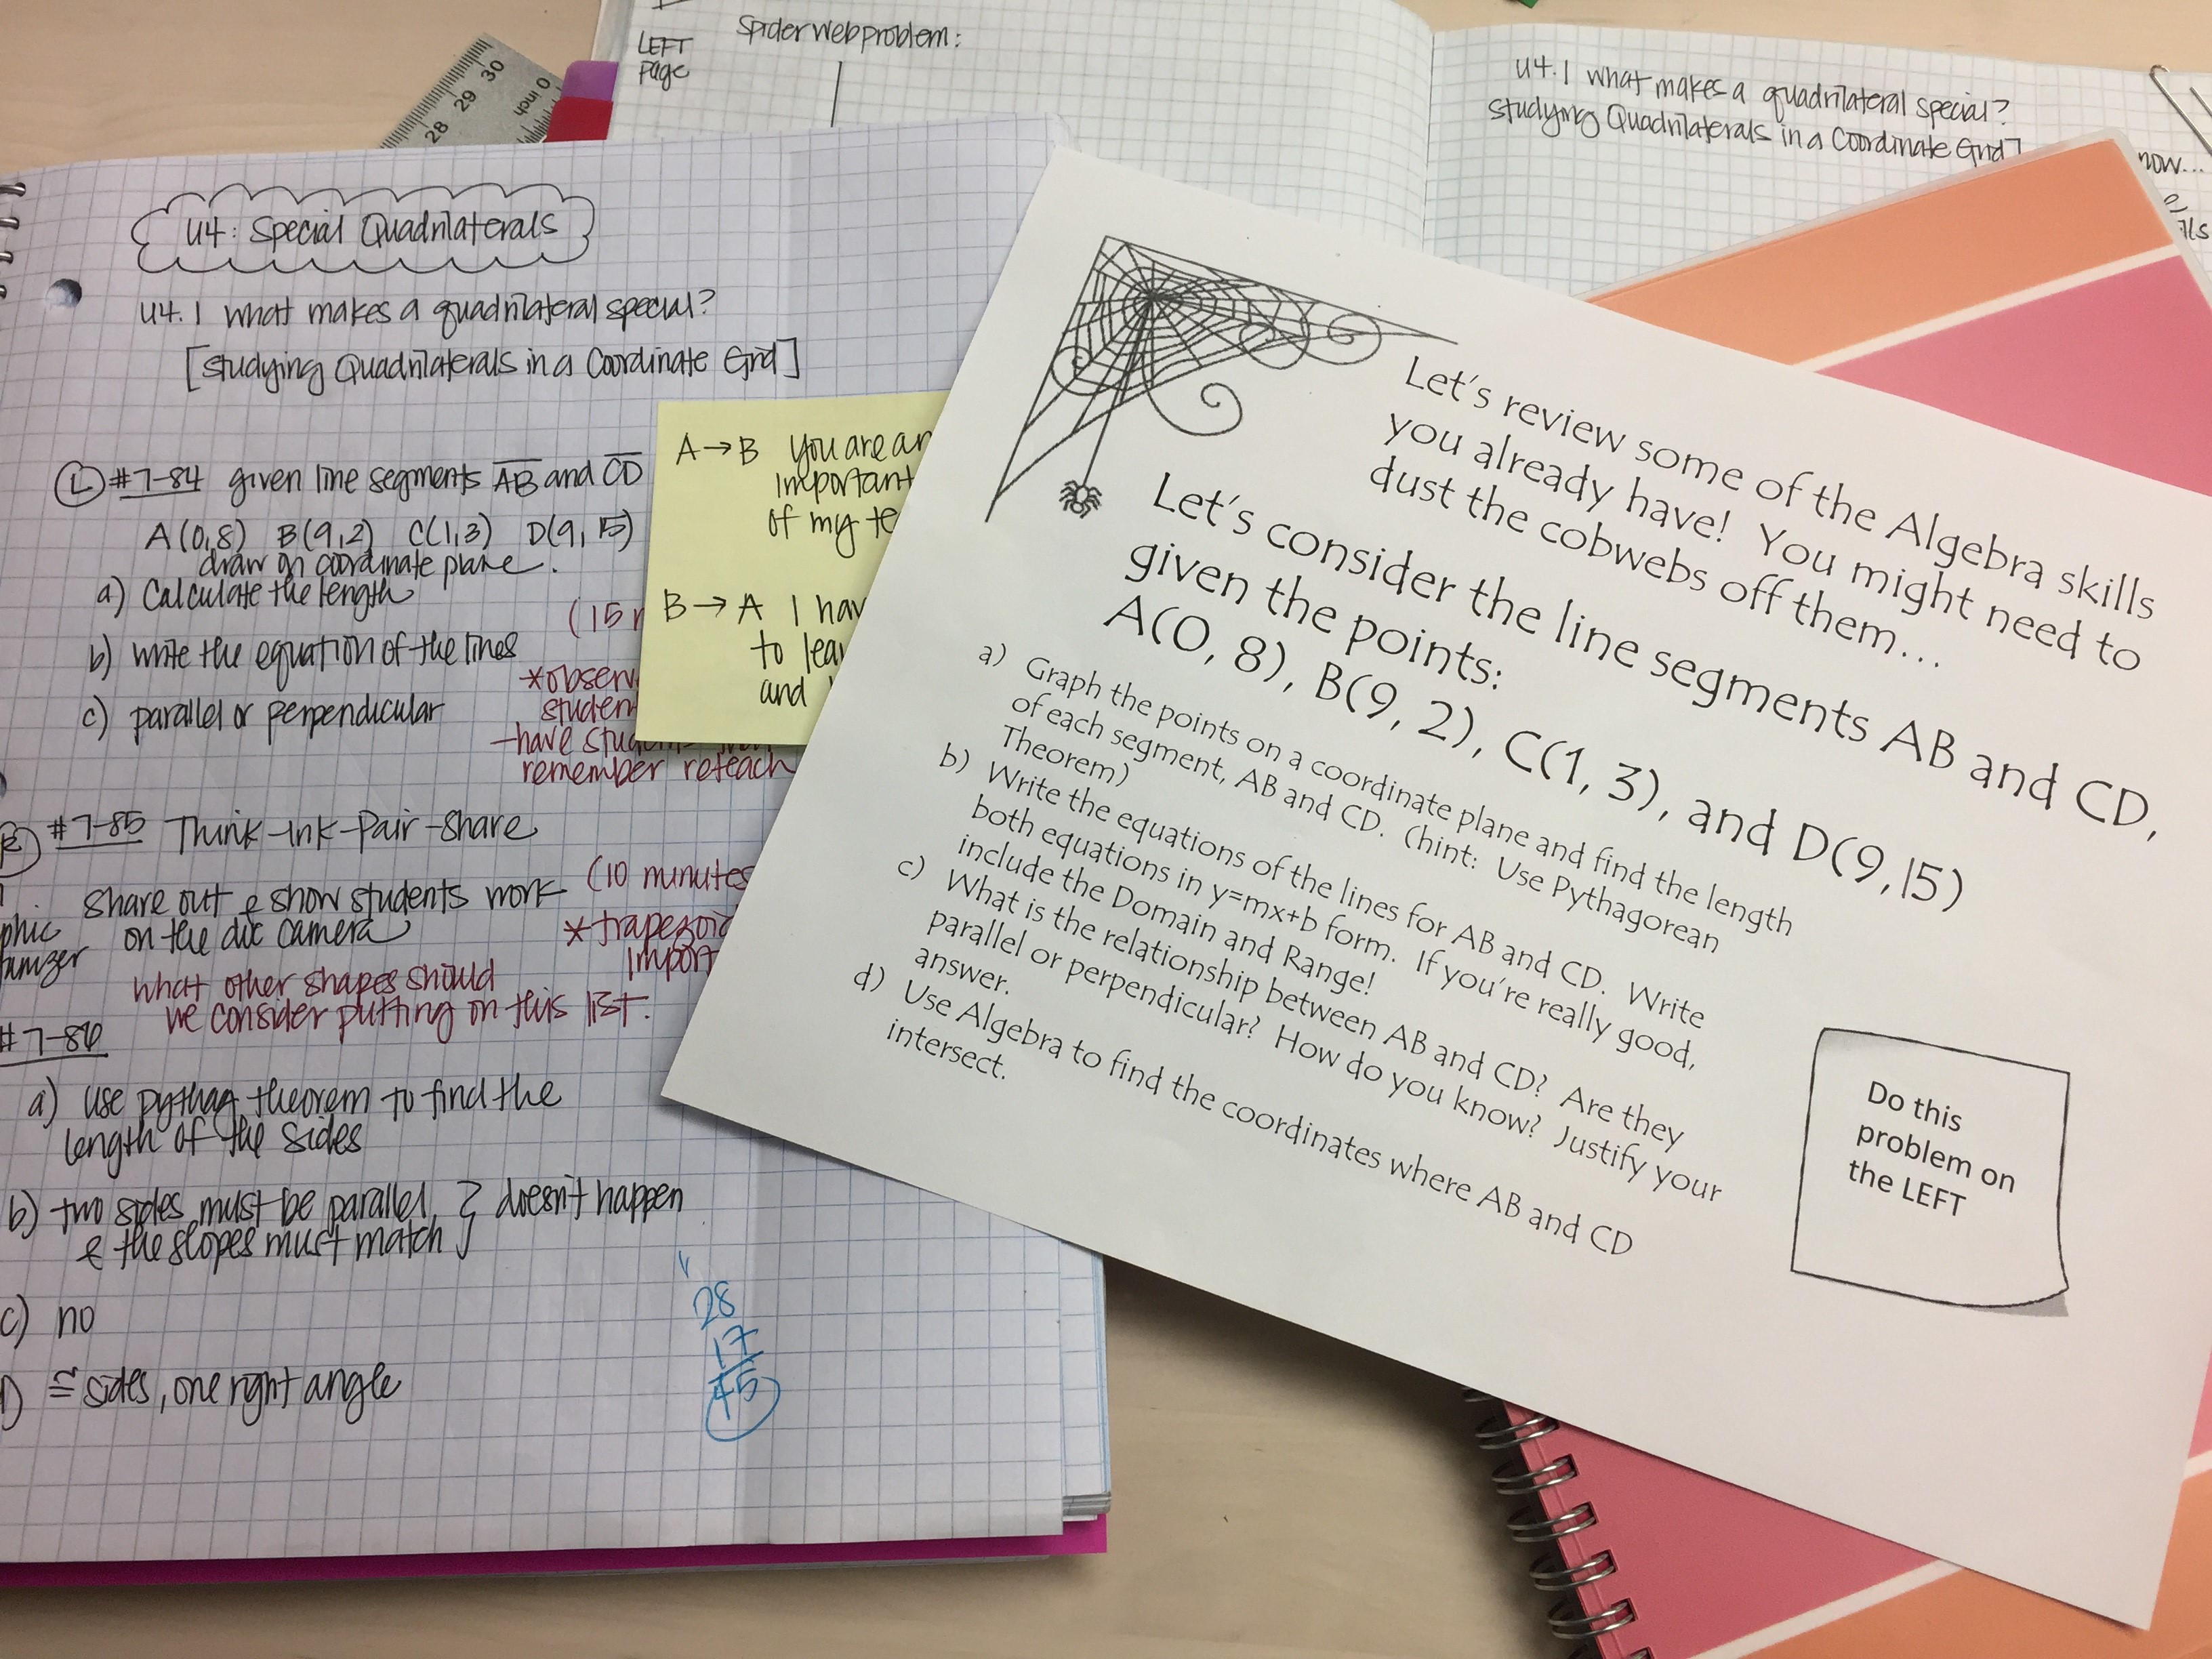 28 29 30
0 inch
LEFT
page
Spider web problem:
U4.1 what makes a quadrilateral special?
studying Quadrilaterals in a Coordinate Grid]
now...
U4: Special Quadrilaterals
U4.1 what makes a quadrilateral special?
[studying Quadrilaterals in a Coordinate Grid]
L #7-84 given line segments AB and CD
A(0,8) B(9,2) C(1,3) D(9,15)
draw on coordinate plane.
a) Calculate the length
(15
b) write the equation of the lines
*observ
studen
c) parallel or perpendicular
-have
remember reteach
A→B you are an
important
of my te
B→A I hav
to lear
and
R #7-85 Think-Ink-Pair-Share
(10 minutes
share out & show students work
on the doc camera
phic
*trapezoid
import
what other shapes should
we consider putting on this list.
#7-86
a) use pythag theorem to find the
length of the sides
b) two sides must be parallel } doesn't happen
& the slopes must match
c) no
D) ≅ sides, one right angle
28
17
45
Let's review some of the Algebra skills
you already have! You might need to
dust the cobwebs off them...
Let's consider the line segments AB and CD,
given the points:
A(0, 8), B(9, 2), C(1, 3), and D(9,15)
a) Graph the points on a coordinate plane and find the length
of each segment, AB and CD. (hint: Use Pythagorean
Theorem)
b) Write the equations of the lines for AB and CD. Write
both equations in y=mx+b form. If you're really good,
include the Domain and Range!
c) What is the relationship between AB and CD? Are they
parallel or perpendicular? How do you know? Justify your
answer.
d) Use Algebra to find the coordinates where AB and CD
intersect.
Do this
problem on
the LEFT